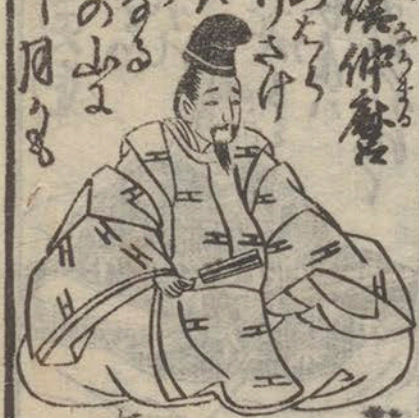 倍仲麿
はら
りさけ
なる
の山に
月かも